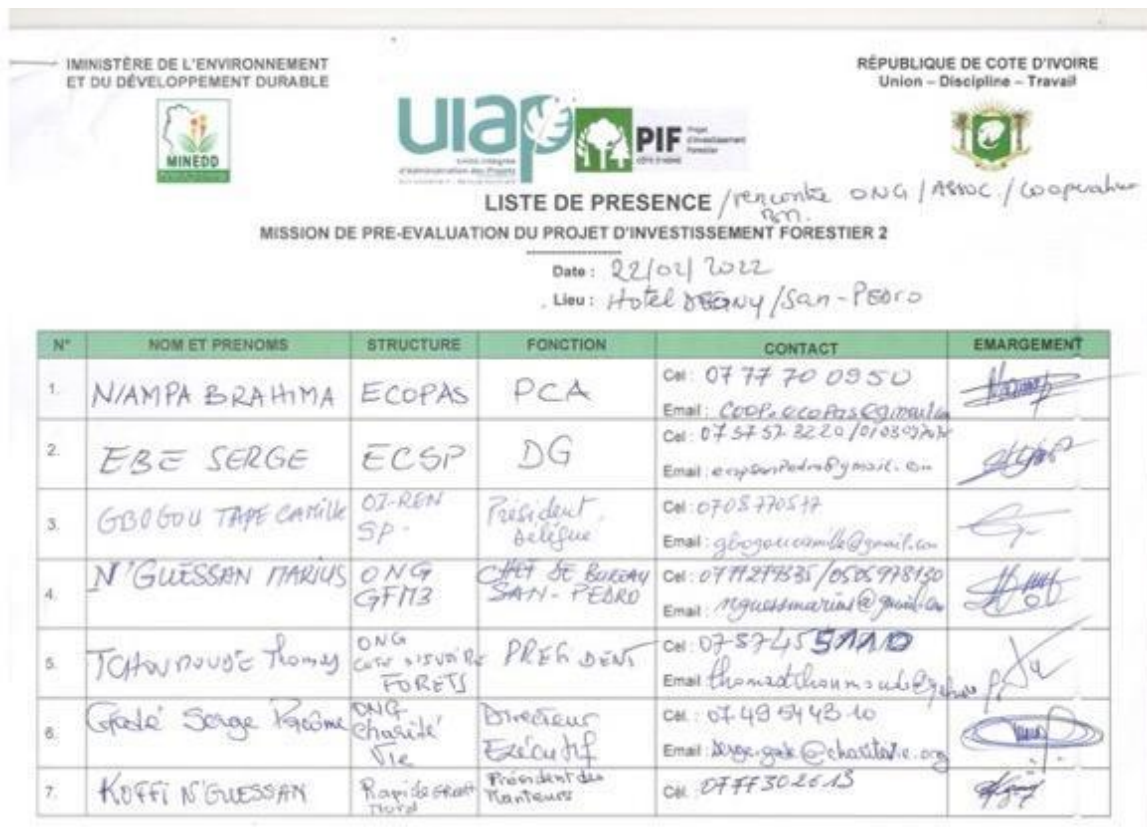 IMINISTÈRE DE L'ENVIRONNEMENT
ET DU DÉVELOPPEMENT DURABLE
RÉPUBLIQUE DE COTE D'IVOIRE
Union – Discipline – Travail
MINEDD
uiap
Unité Intégrée
d'Administration des Projets
PIF
Projet
d'Investissement
Forestier
CÔTE D'IVOIRE
LISTE DE PRESENCE /rencontre ONG / ASSOC. / Cooperative
MISSION DE PRE-EVALUATION DU PROJET D'INVESTISSEMENT FORESTIER 2
Date : 22/02/2022
Lieu : Hotel DEGNY /San-PEDro
N° NOM ET PRENOMS STRUCTURE FONCTION CONTACT EMARGEMENT
1. NIAMPA BRAHIMA ECOPAS PCA Cel : 07 77 70 09 50
Email :
2. EBE SERGE ECSP DG Cel : 07 57 57 32 20
Email :
3. GBOGOU TAPE CAMille OI-REN SP- Président délégué Cel : 0708770517
Email : gbogoucamille@gmail.com
4. N'GUESSAN MARIUS ONG GFM3 CHEF DE BUREAU SAN-PEDRO Cel : 0505978130
Email :
5. Thomas ONG COTE D'IVOIRE FORETS PRESIDENT Cel : 075745
Email
6. Serge ONG Charité Vie Directeur Exécutif Cel. : 07 49 54 43 10
Email : serge.gade@charitevie.org
7. KOFFI N'GUESSAN Président des Planteurs Cel. 0777302613